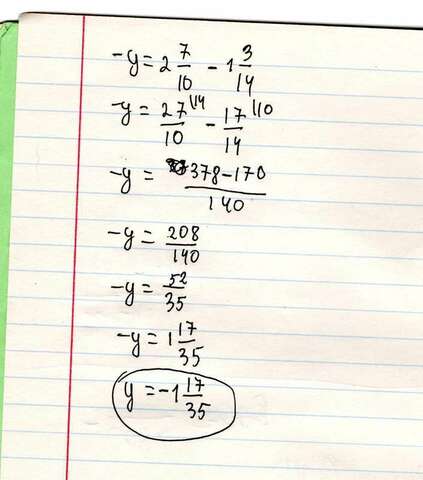 -y = 2 7/10 - 1 3/14
-y = 27\14/10 - 17\10/14
-y = 378-170/140
-y = 208/140
-y = 52/35
-y = 1 17/35
y = -1 17/35